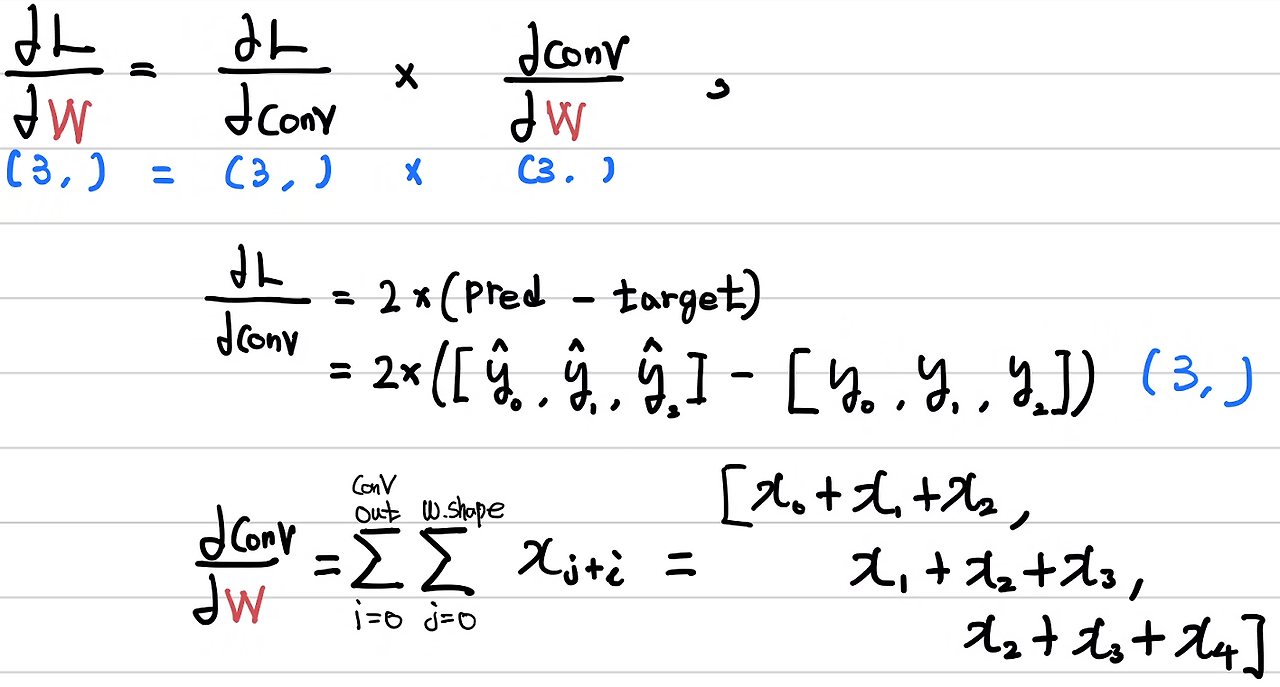 ∂L/∂W = ∂L/∂Conv × ∂Conv/∂W ,
(3, ) = (3, ) × (3. )
∂L/∂Conv = 2×(pred - target)
= 2×([ŷ₀, ŷ₁, ŷ₂] - [y₀, y₁, y₂]) (3, )
∂Conv/∂W = Σ_{i=0}^{Conv out} Σ_{j=0}^{W.shape} x_{j+i} = [x₀+x₁+x₂,
x₁+x₂+x₃,
x₂+x₃+x₄]